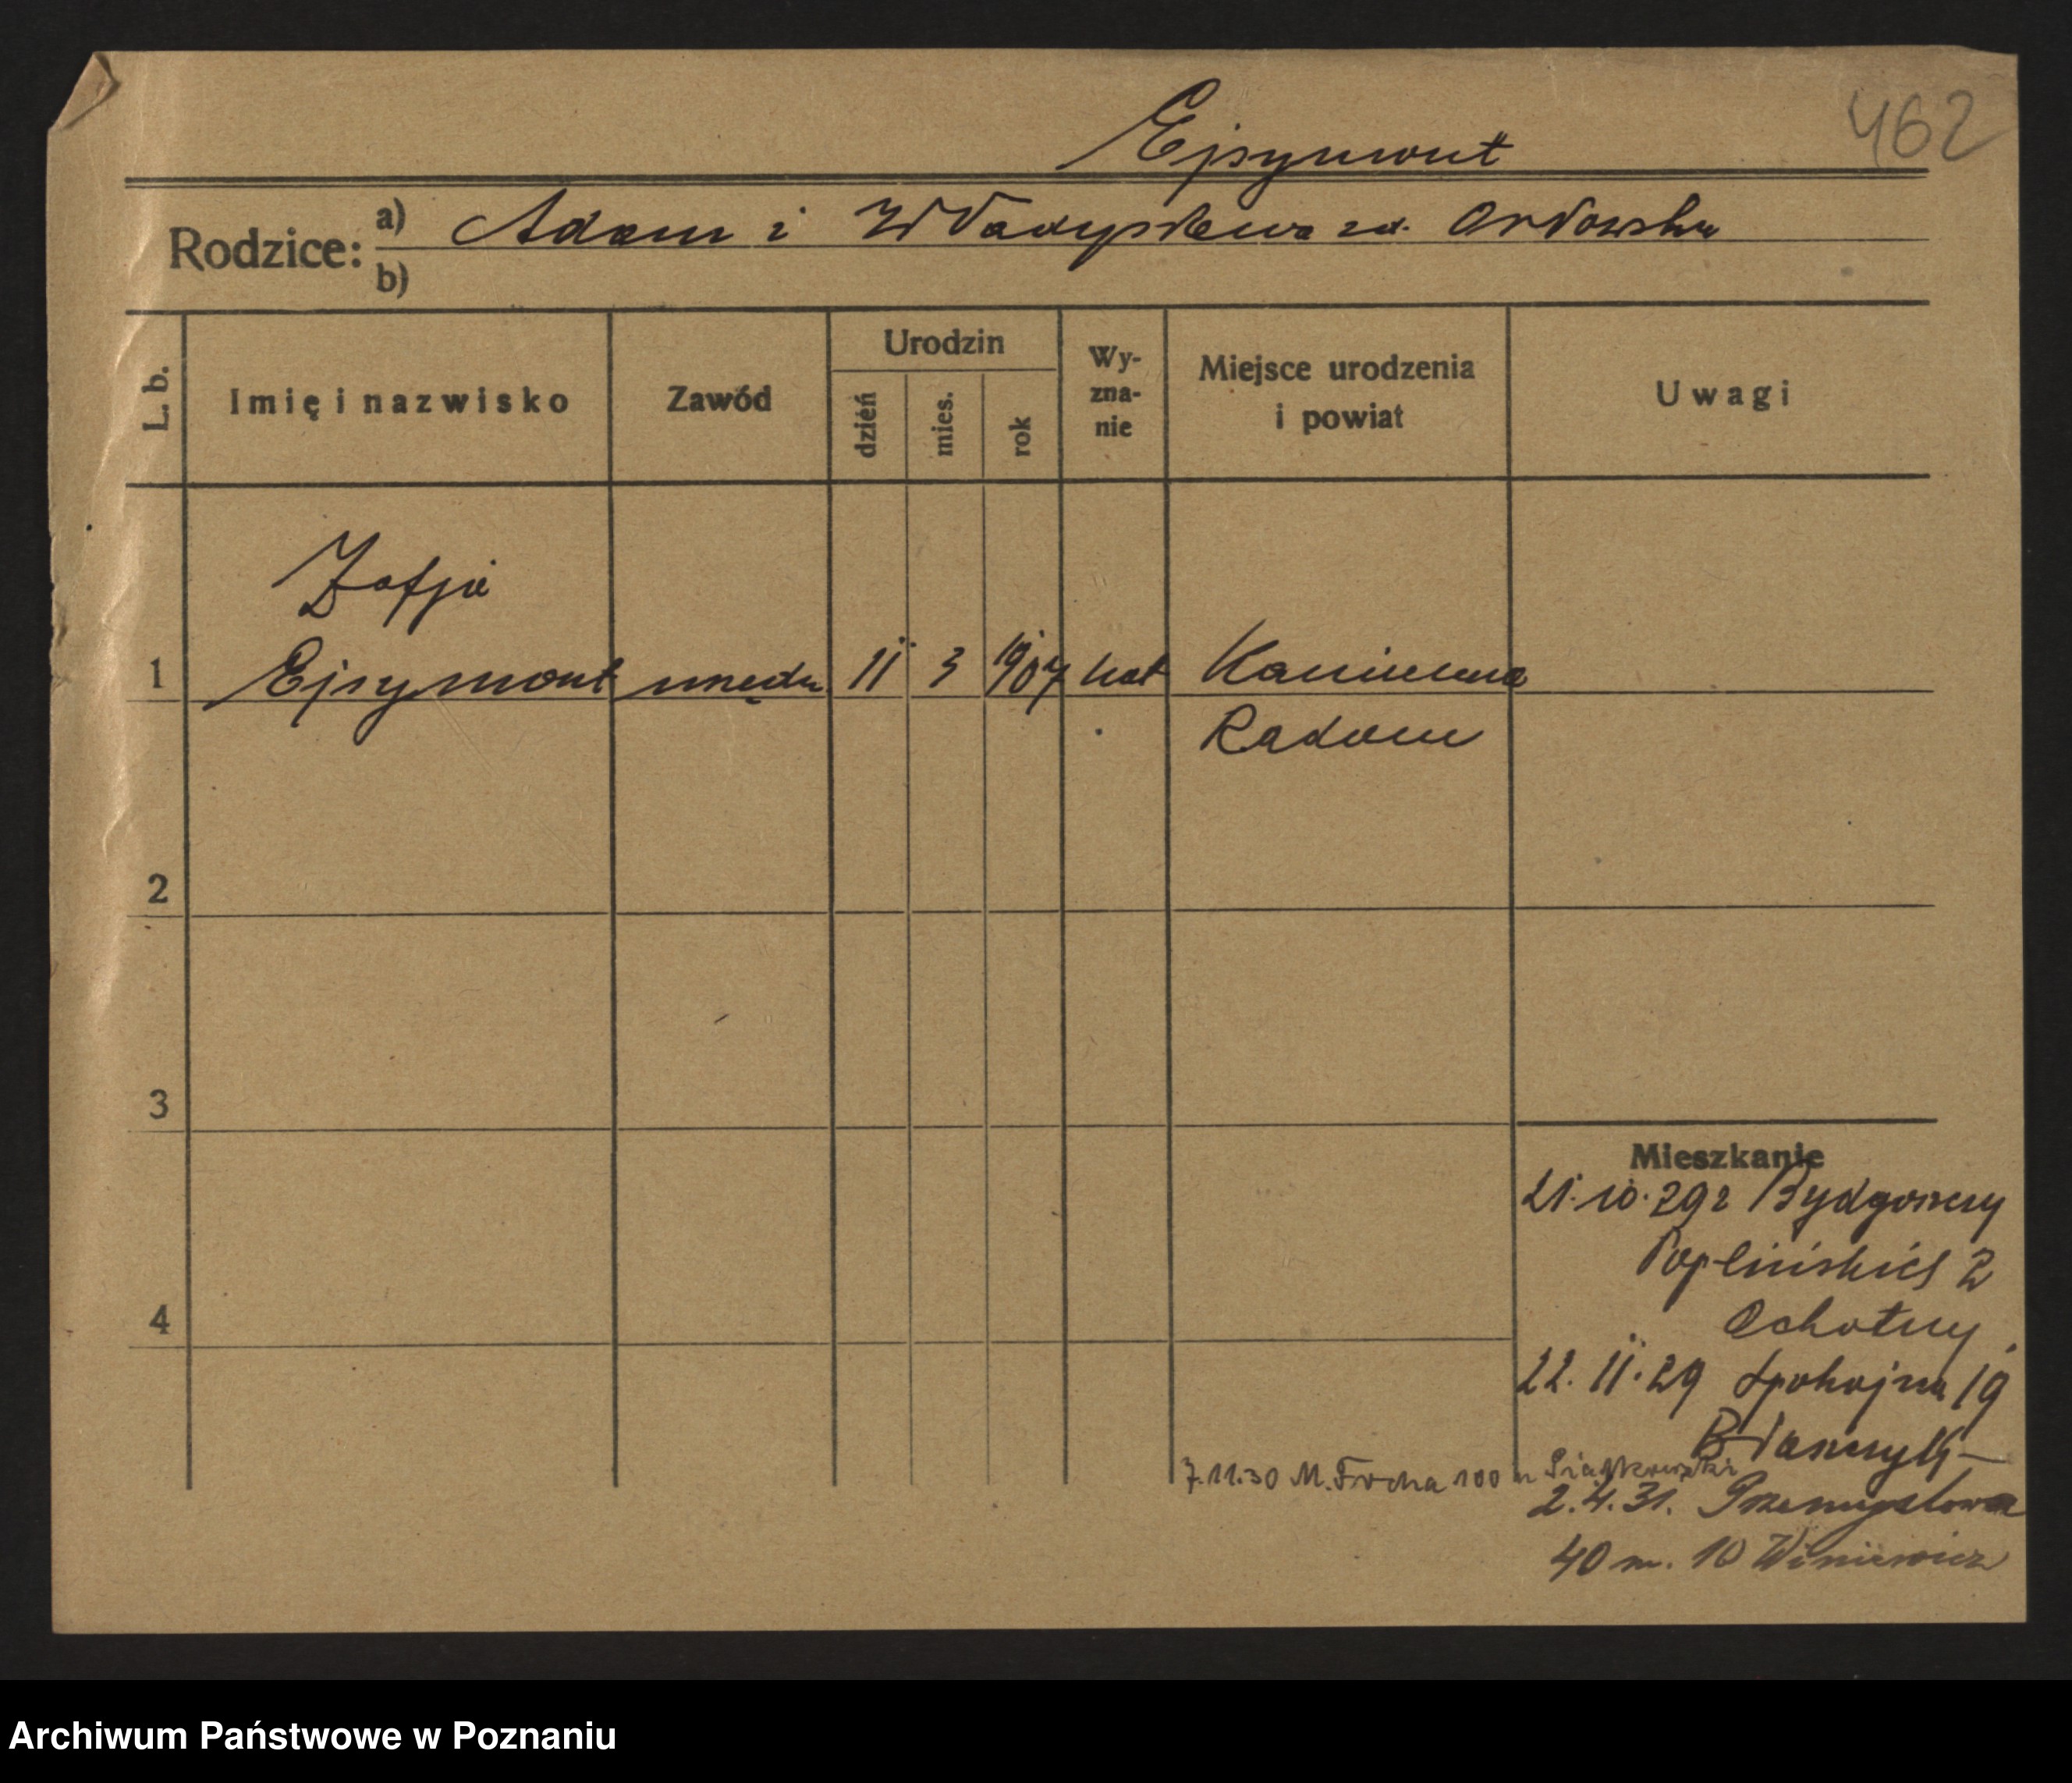 Ejsymont
462
Rodzice: a) Adam i Władysława zd. Orłowska
b)
L. b.
Imię i nazwisko
Zawód
Urodzin
dzień
mies.
rok
Wy-
zna-
nie
Miejsce urodzenia
i powiat
Uwagi
Zofja
1 Ejsymont urzędn 11 3 1907 kat Kamienna
Radom
2
3
4
Mieszkanie
21.10.29 z Bydgoszczy
Poplińskich 2
Ochotny
22.11.29 Spokojna 19
7.11.30 M. Focha 100 Piątkowski
2.4.31. Przemysłowa
40 m. 10 Winiewicz
Archiwum Państwowe w Poznaniu